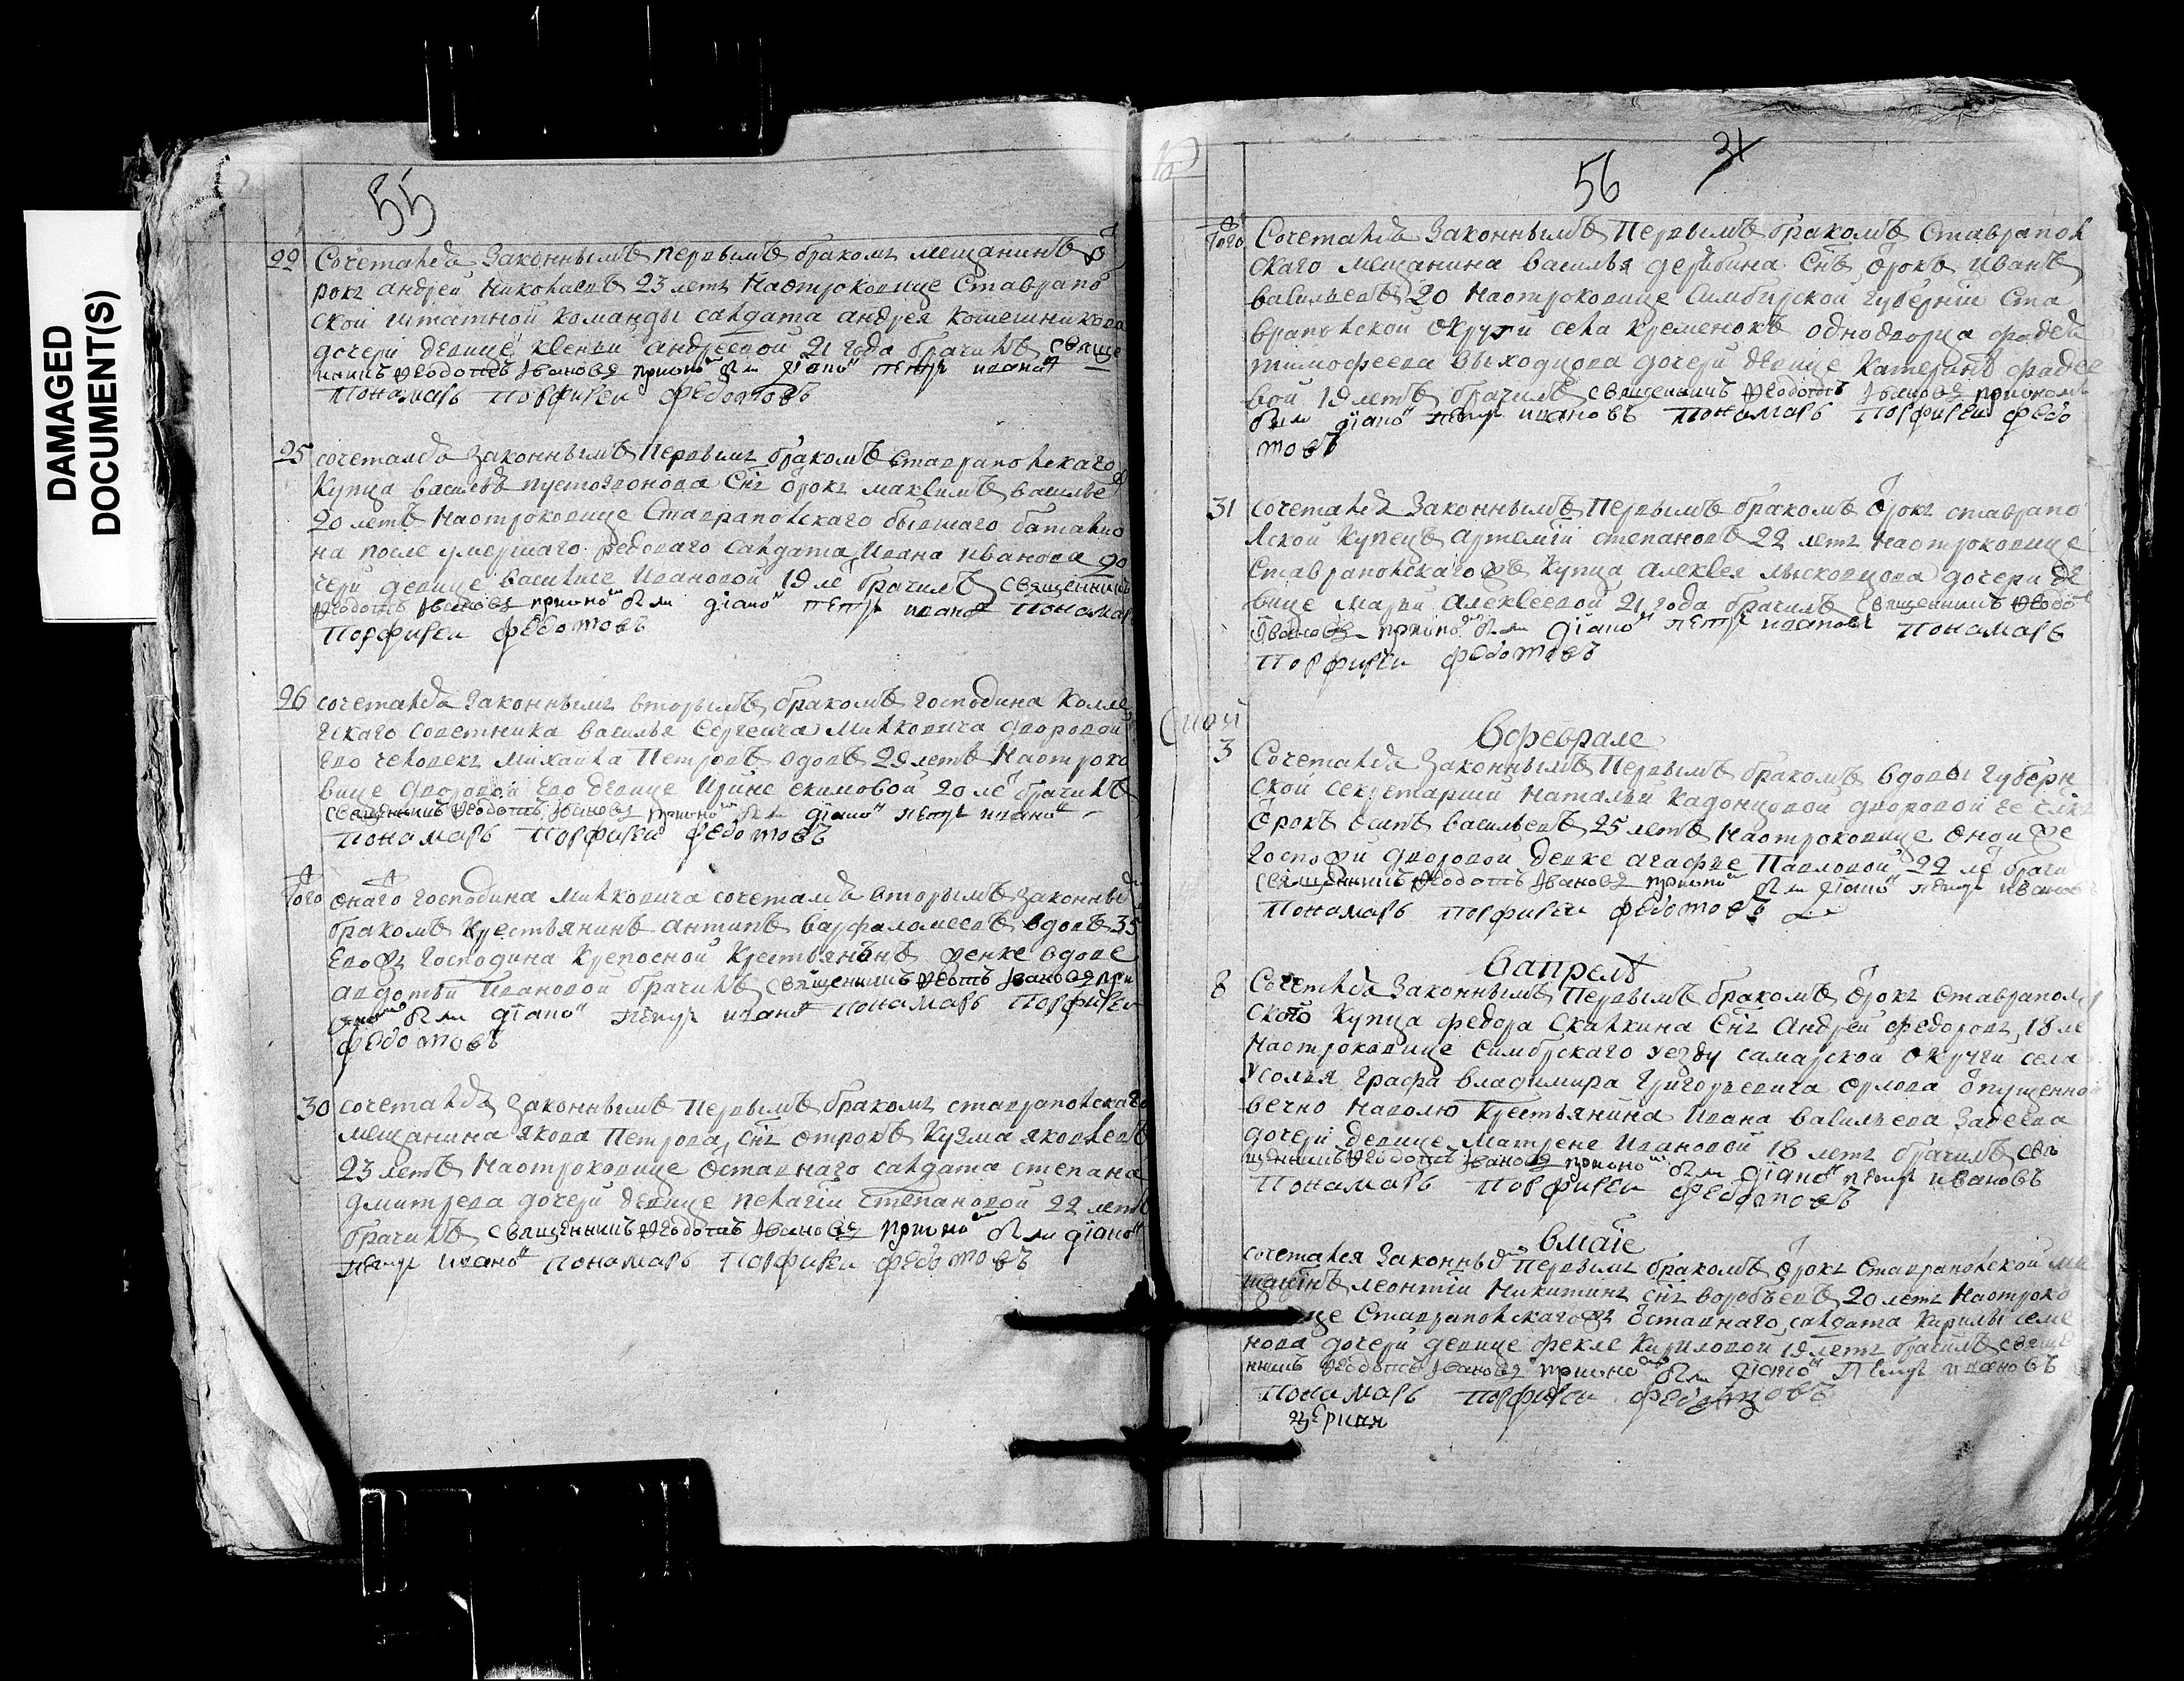 DAMAGED
DOCUMENT(S)
55
22 Сочетался Законнымъ первымъ бракомъ мещанинъ о
рокъ андрей Николаевъ 23 летъ Наотроковице Ставрапо
ской штатной команды салдата андрея Кошешникова
дочери девице андреевой 21 года брачилъ свяще
нникъ Феодотъ Ивановъ при оно были діако петръ ивано
Пономарь Порфирей Федотовъ
25 сочетался Законнымъ Первымъ бракомъ Ставрапольскаго
Купца василья пустозвонова Снъ ѻрокъ максимъ василье
20 летъ Наотроковице Ставрапольскаго бывшаго баталио
на после умершаго редоваго салдата Ивана иванова до
чери девице василисе Ивановой 19 ле брачилъ священникъ
Феодотъ Ивановъ при оно были діако петръ ивано Пономар
Порфирей Федотовъ
26 сочетался Законнымъ вторымъ бракомъ господина Колле
гскаго советника василья Сергеича Милковича дворовой
Ево человекъ михаила Петровъ вдовъ 29 летъ Наотроко
вице дворовой Ево девице Ирине екимовой 20 ле брачилъ
священникъ Феодотъ Ивановъ при оно были діако петръ ивано
Пономарь Порфирей Федотовъ
того онаго господина милковича сочетался вторымъ законны
бракомъ Крестьянинъ антипъ варфаломеевъ вдовъ 35
Евожъ господина Крепосной Крестьянъ женке вдове
авдотьи Ивановой брачилъ священникъ Феотъ Ивановъ при
оно были діако петръ ивано Пономарь Порфирей
Федотовъ
30 сочетался Законнымъ Первымъ бракомъ ставрапольскаго
мещанина якова Петрова снъ отрокъ Кузма яковлевъ
23 летъ Наотроковице ѻставнаго салдата степана
дмитрева дочери девице пелагіи степановой 22 летъ
брачилъ священникъ Феодотъ Ивановъ при оно были діако
петръ ивано Пономарь Порфирей Федотовъ
56 31
того Сочетался Законнымъ Первымъ бракомъ Ставрапол
скаго мещанина василья дерибина Снъ ѻрокъ Иванъ
васильевъ 20 Наотроковице Симбирской губерніи Ста
врапольской округи села кременокъ однодворца фадея
тимофеева выходцова дочери девице Катерине фадее
вой 19 летъ брачилъ священникъ Феодотъ Ивановъ при оном
были діако петръ ивановъ Пономарь Порфирей федо
товъ
31 сочетался Законнымъ Первымъ бракомъ ѻрокъ ставрапо
лской Купецъ артемій степановъ 22 летъ Наотроковице
Ставрапольскагожъ Купца алексея мысковцова дочери де
вице марьи алексеевой 21 года брачилъ священникъ Феодо
Ивановъ при оно были діако петръ ивановъ Пономарь
Порфирей федотовъ
Вфеврале
3 Сочетался Законнымъ Первымъ бракомъ вдовы губерн
ской секретарши Натальи Кадонцовой дворовой ее
ѻрокъ ѻсипъ васильевъ 25 летъ Наотроковице онои же
госпожи дворовой девке агафье Павловой 22 ле брачи
священникъ Феодотъ Ивановъ при оно были діако петръ ивановъ
Пономарь порфирей федотовъ
Вапреле
8 Сочетался Законнымъ Первымъ бракомъ ѻрокъ ставрапол
ского Купца федора Скалкина Снъ Андрей федоровъ 18 ле
Наотроковице симбрскаго уезду самарской округи села
Усолья графа владимира григорьевича орлова ѻпущенно
вечно наволю Крестьянина Ивана васильева Задеева
дочери девице матрене Ивановой 18 летъ брачилъ свя
щенникъ Феодотъ Ивановъ при оно были діако петръ ивановъ
Пономарь Порфирей федотовъ
Вмаіе
сочетался Законны Первымъ бракомъ ѻрокъ Ставрапольской ме
щанинъ леонтій Никитинъ снъ воробьевъ 20 летъ Наотроко
вице Ставрапольскагожъ ѻставнаго салдата Кирилы семе
нова дочери девице фекле Кириловой 19 летъ брачилъ свяще
нникъ Феодотъ Ивановъ при оно были діако Петръ ивановъ
Пономарь порфирей федотовъ